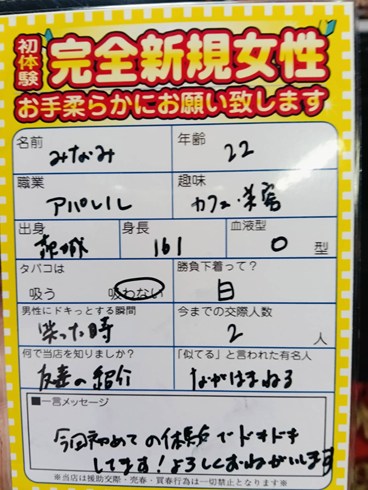 初体験 完全新規女性
お手柔らかにお願い致します
名前 みなみ 年齢 22
職業 アパレル 趣味 カフェ・
出身 茨城 身長 161 血液型 O 型
タバコは 吸う 吸わない 勝負下着って? 白
男性にドキっとする瞬間 笑った時 今までの交際人数 2 人
何で当店を知りましたか? 友達の紹介 「似てる」と言われた有名人 ながはまねる
■一言メッセージ
今回初めての体験でドキドキ
してます!よろしくおねがいします
※当店は援助交際・売春・買春行為は一切禁止となります※